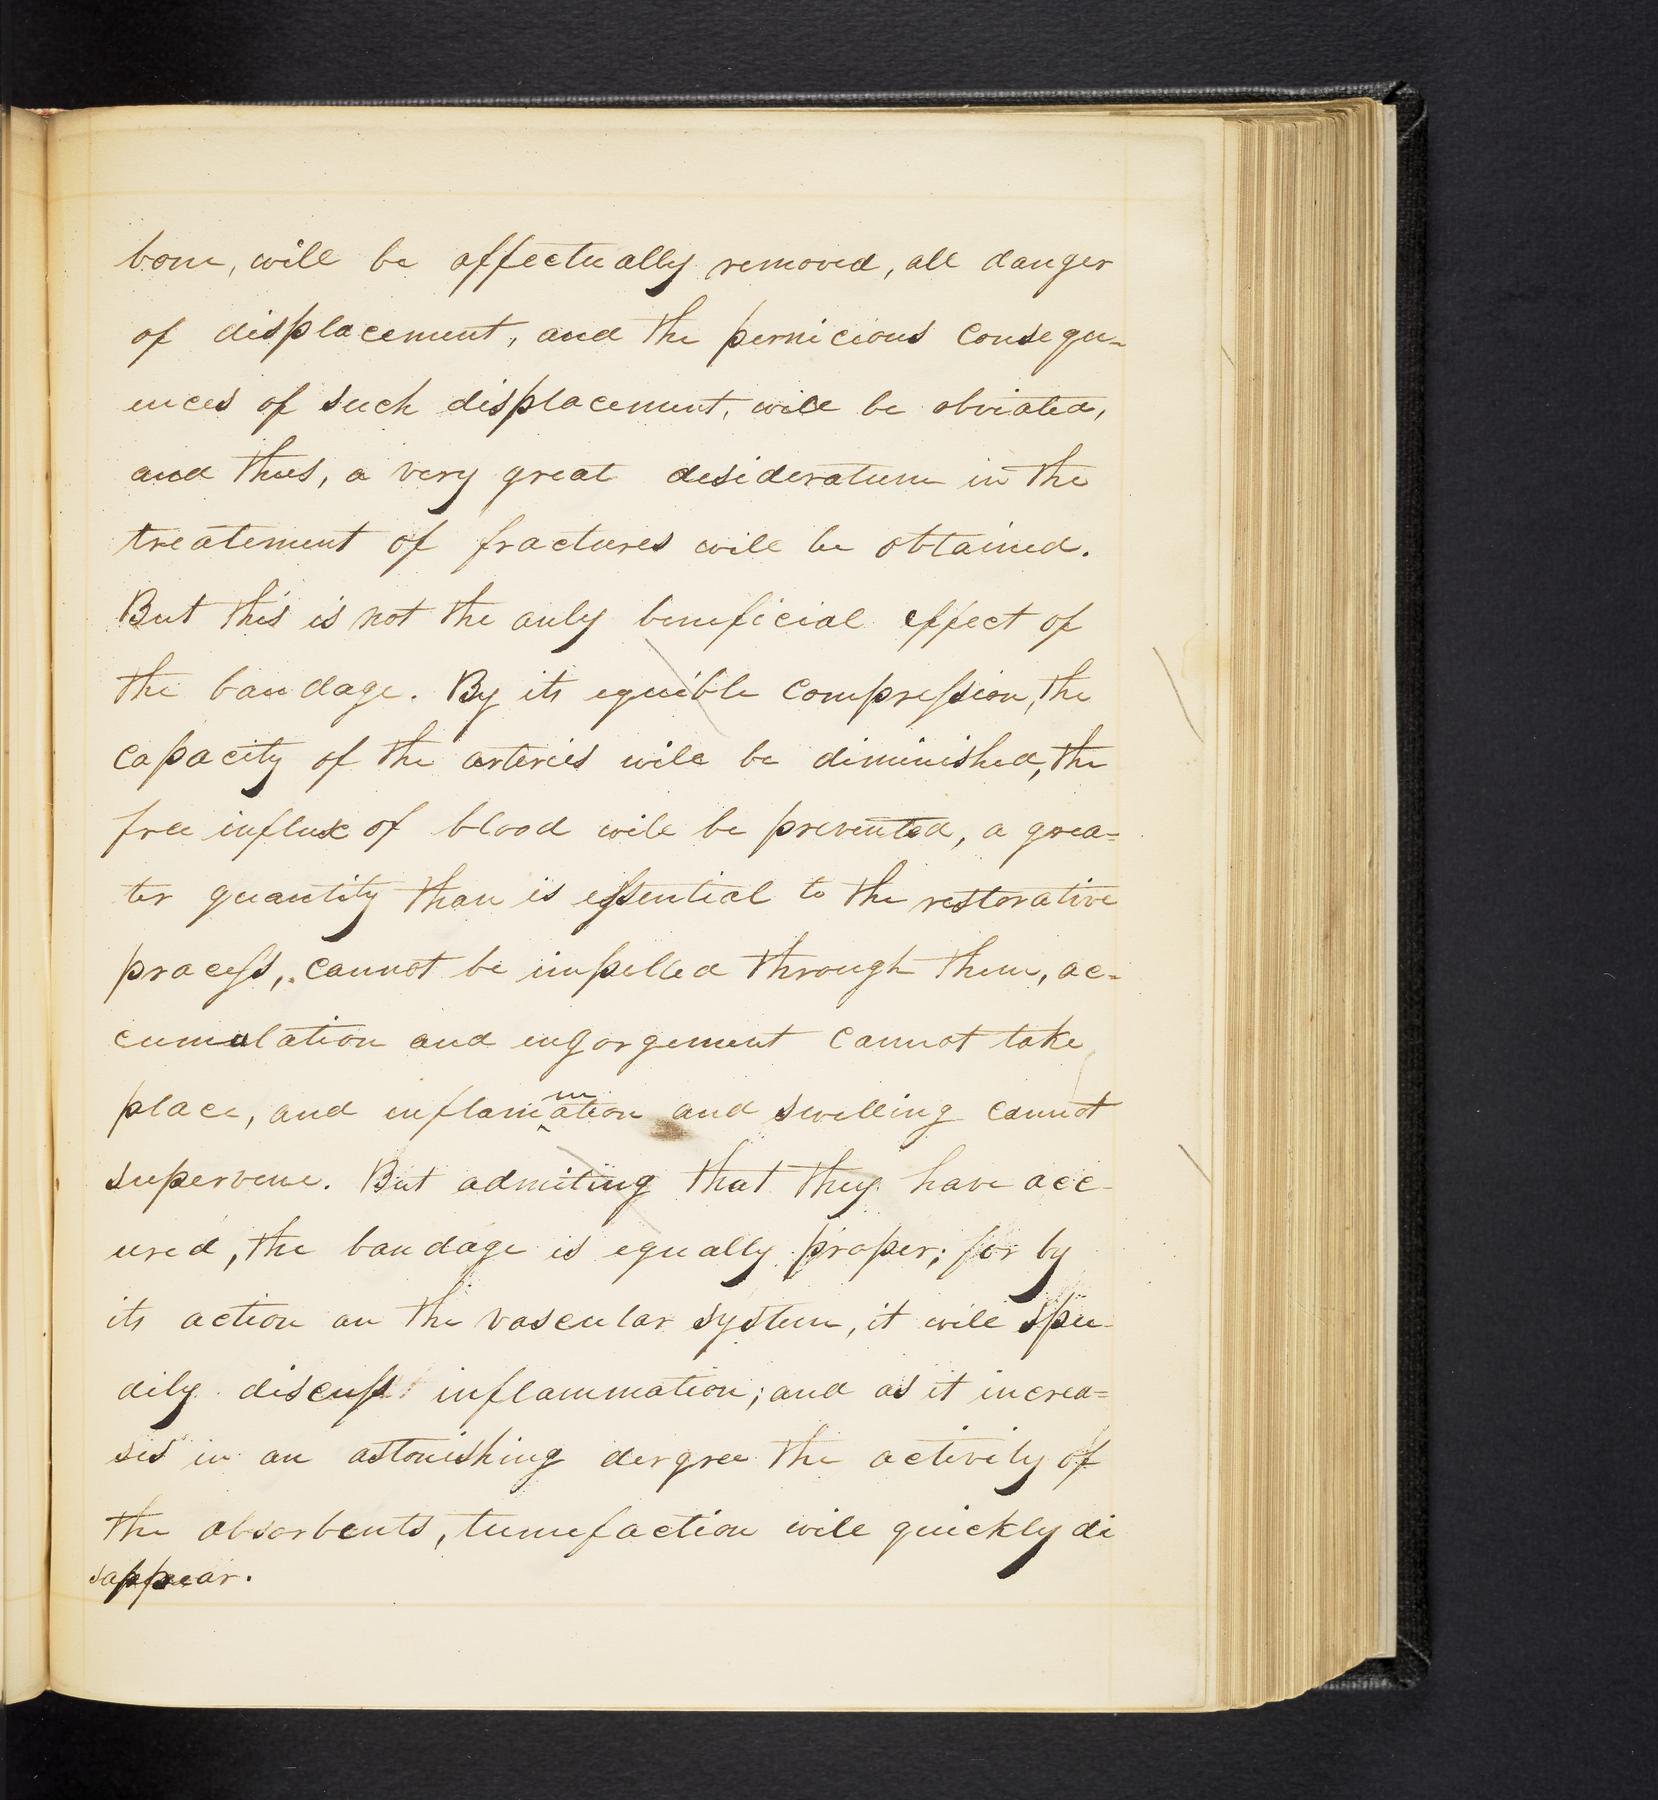 bone, will be affectually removed, all danger
of displacement, and the pernicious consequ-
ences of such displacement, will be obviated,
and thus, a very great desideratum in the
treatement of fractures will be obtained.
But this is not the only beneficial effect of
the bandage. By its equible compression, the
capacity of the arteries will be diminished, the
free influx of blood will be prevented, a grea-
ter quantity than is essential to the restorative
process, cannot be impelled through them, ac-
cumulation and engorgement cannot take
place, and inflammation and swelling cannot
supervene. But admiting that they have occ-
ured, the bandage is equally proper; for by
its action on the vascular system, it will spee-
dily discuss inflammation; and as it increa-
ses in an astonishing dergree the activity of
the absorbents, tumefaction will quickly di
sappear.